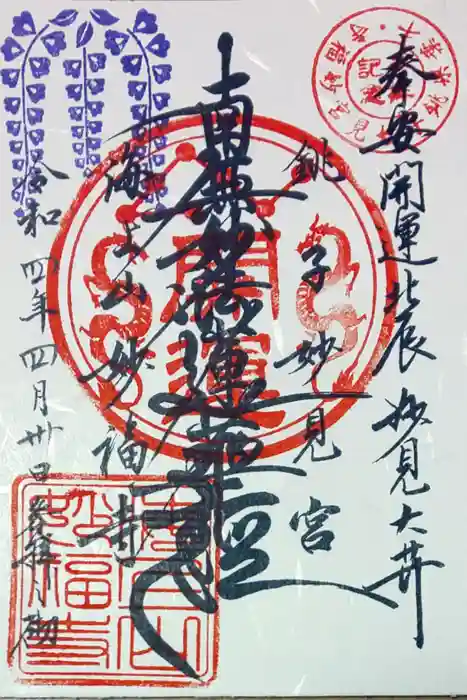 奉安 開運北辰妙見大井
銚子妙見宮
南無妙法蓮華経
海上山妙福寺
令和四年四月卅日参拝
開運
海上山妙福寺